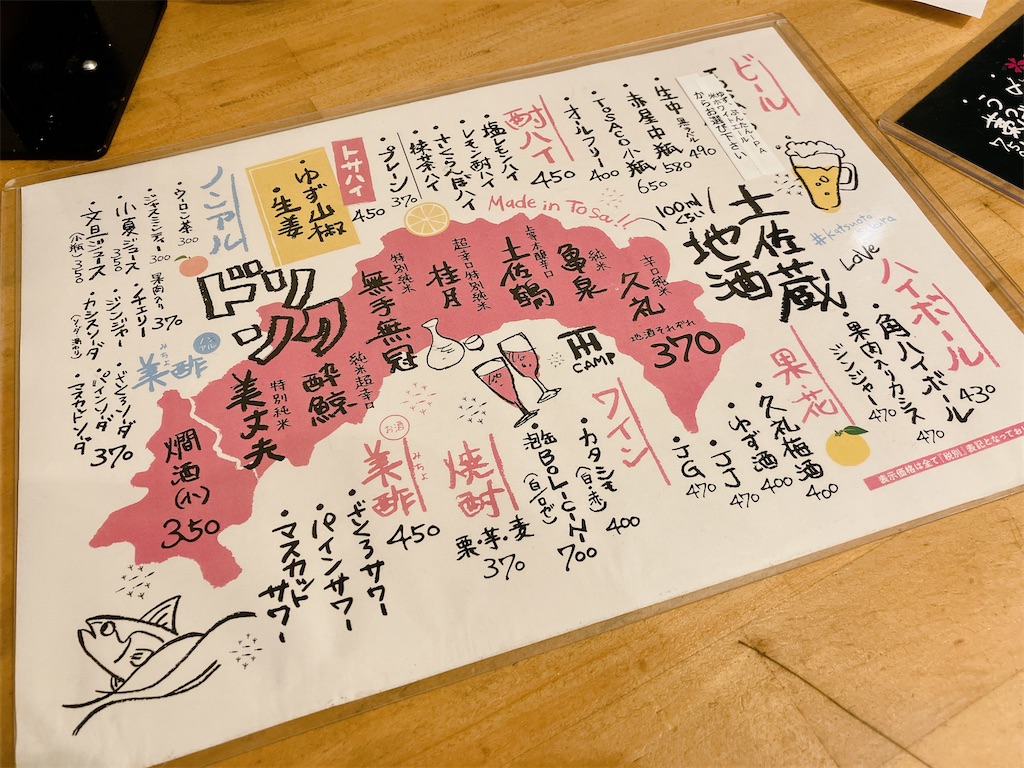 ビール
ゆず、ぶんたん、IPA
米ホワイトエール
からお選び下さい
・生中 果てル 490
・赤星中瓶 580
・TOSACO小瓶 650
・オールフリー 400
酎ハイ 450
・塩レモンハイ
・レモン酎ハイ
・さくらんぼハイ
・抹茶ハイ
・プレーン 370
トサハイ 450
ゆず山椒
・生姜
ノンアル
・ウーロン茶 300
・ジャスミンティー 300
・小夏ジュース 350
・文旦ジュース (小瓶) 350
果肉入り
・チェリー 370
・ジンジャー
・カシスソーダ
ノンアル
美酢
みちょ
・ざくろソーダ
・パインソーダ
・マスカットソーダ
370
ドリンク
Made in Tosa!!
100ml くらい
土佐蔵
地酒
#katsuo
LOVE
辛口純米
久礼
純米
亀泉
土佐鶴
超辛口特別純米
桂月
特別純米
無手無冠
純米超辛口
酔鯨
特別純米
美丈夫
地酒それぞれ
370
燗酒(小)
350
CAMP
ハイボール
・角ハイボール 430
・果肉入りカシス 470
ジンジャー 470
果花
・久礼梅酒 400
・ゆず酒 400
・JJ 470
・JG 470
ワイン
・カタシモ (白・赤) 400
(白/ロゼ) 700
焼酎
栗・芋・麦
370
お酒
美酢
みちょ
450
・ざくろサワー
・パインサワー
・マスカットサワー
表示価格は全て「税別」表記となってお